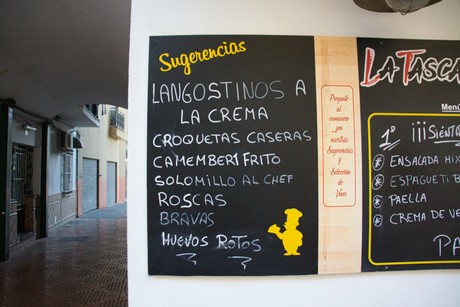 Sugerencias
LANGOSTINOS A
LA CREMA
CROQUETAS CASERAS
CAMEMBERT FRITO
SOLOMILLO AL CHEF
ROSCAS
BRAVAS
HUEVOS ROTOS
Pregunte al
camarero
por
nuestras
Sugerencias
y
Selección
de
Vinos
LA TASCA
Menú
1º ¡¡¡Sién
ENSALADA MIX
ESPAGUETI B
PAELLA
CREMA DE VE
PA